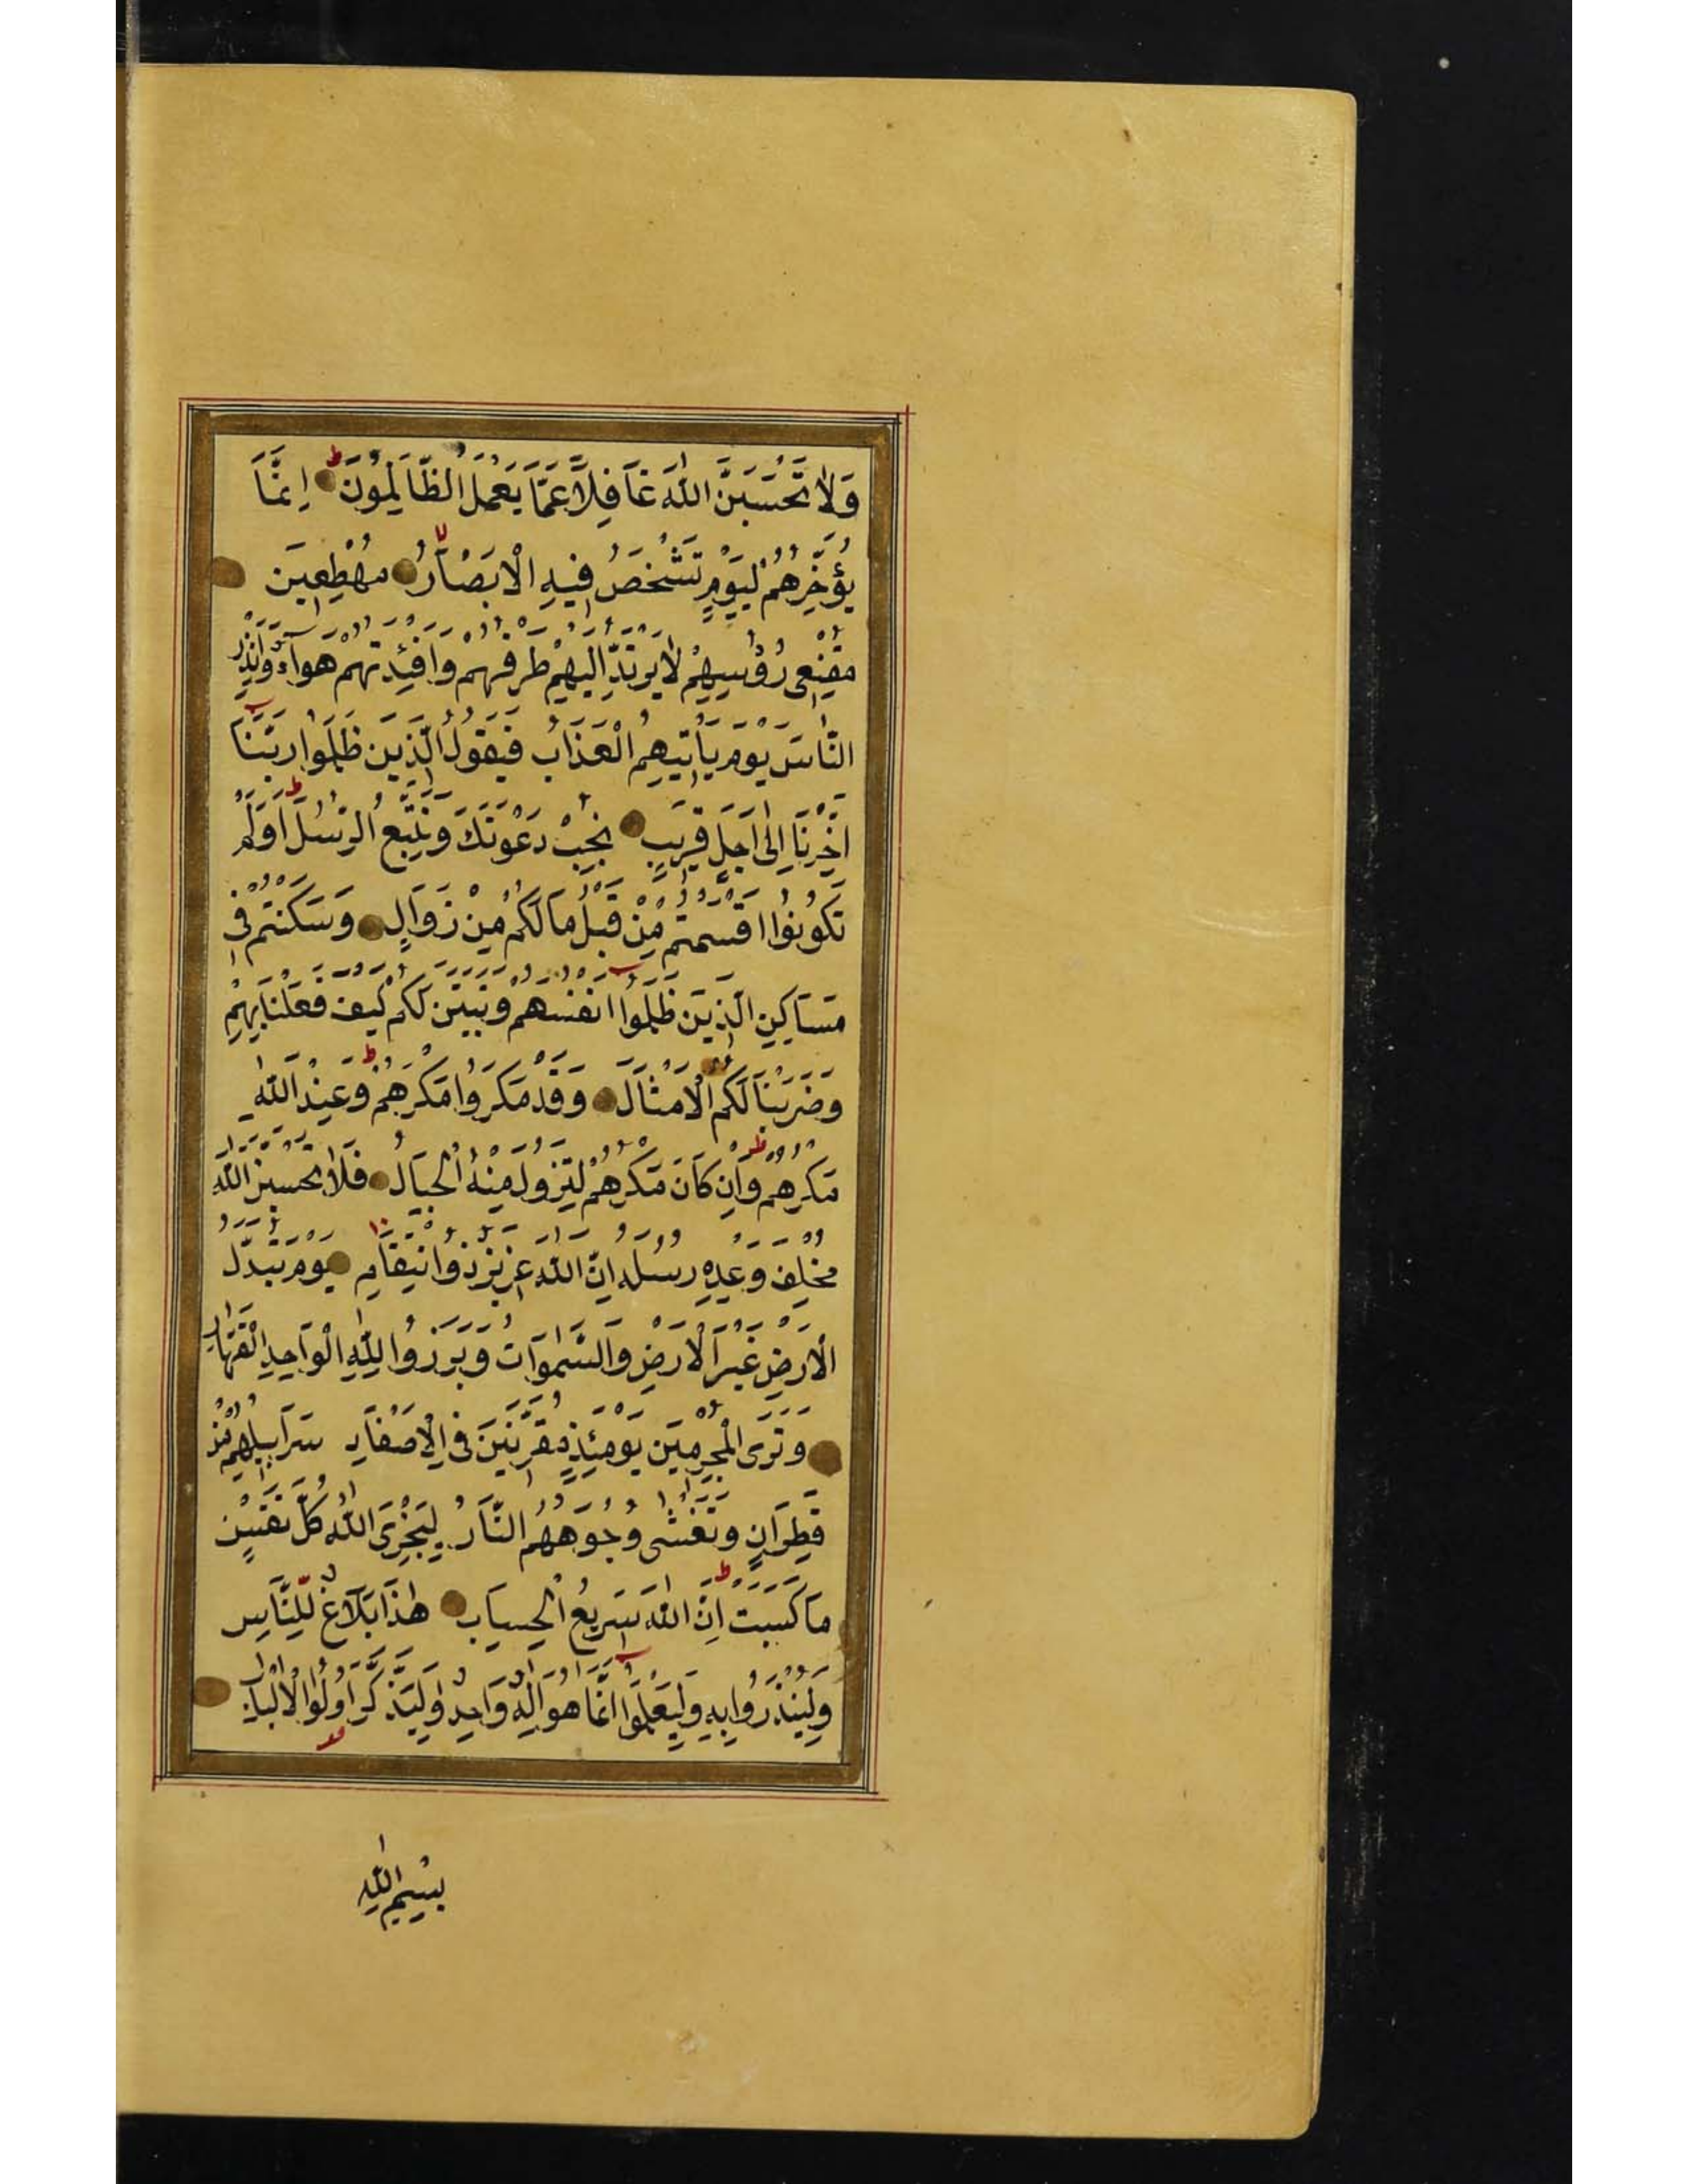 وَلَا تَحْسَبَنَّ اللّٰهَ غَافِلًا عَمَّا يَعْمَلُ الظَّالِمُونَ ط اِنَّمَا
يُؤَخِّرُهُمْ لِيَوْمٍ تَشْخَصُ فِيهِ الْاَبْصَارُ لا مُهْطِعِينَ
مُقْنِعِى رُؤُسِهِمْ لَا يَرْتَدُّ اِلَيْهِمْ طَرْفُهُمْ وَاَفْئِدَتُهُمْ هَوَآءٌ وَاَنْذِرِ
النَّاسَ يَوْمَ يَأْتِيهِمُ الْعَذَابُ فَيَقُولُ الَّذِينَ ظَلَمُوا رَبَّنَا
اَخِّرْنَا اِلٰى اَجَلٍ قَرِيبٍ نُجِبْ دَعْوَتَكَ وَنَتَّبِعِ الرُّسُلَ ط اَوَلَمْ
تَكُونُوا اَقْسَمْتُمْ مِنْ قَبْلُ مَا لَكُمْ مِنْ زَوَالٍ وَسَكَنْتُمْ فِى
مَسَاكِنِ الَّذِينَ ظَلَمُوا اَنْفُسَهُمْ وَتَبَيَّنَ لَكُمْ كَيْفَ فَعَلْنَا بِهِمْ
وَضَرَبْنَا لَكُمُ الْاَمْثَالَ وَقَدْ مَكَرُوا مَكْرَهُمْ ط وَعِنْدَ اللّٰهِ
مَكْرُهُمْ ط وَاِنْ كَانَ مَكْرُهُمْ لِتَزُولَ مِنْهُ الْجِبَالُ فَلَا تَحْسَبَنَّ اللّٰهَ
مُخْلِفَ وَعْدِهِ رُسُلَهُ اِنَّ اللّٰهَ عَزِيزٌ ذُو انْتِقَامٍ يَوْمَ تُبَدَّلُ
الْاَرْضُ غَيْرَ الْاَرْضِ وَالسَّمٰوَاتُ وَبَرَزُوا لِلّٰهِ الْوَاحِدِ الْقَهَّارِ
وَتَرَى الْمُجْرِمِينَ يَوْمَئِذٍ مُقَرَّنِينَ فِى الْاَصْفَادِ سَرَابِيلُهُمْ مِنْ
قَطِرَانٍ وَتَغْشٰى وُجُوهَهُمُ النَّارُ لِيَجْزِىَ اللّٰهُ كُلَّ نَفْسٍ
مَا كَسَبَتْ ط اِنَّ اللّٰهَ سَرِيعُ الْحِسَابِ هٰذَا بَلَاغٌ لِلنَّاسِ
وَلِيُنْذَرُوا بِهِ وَلِيَعْلَمُوا اَنَّمَا هُوَ اِلٰهٌ وَاحِدٌ وَلِيَذَّكَّرَ اُولُوا الْاَلْبَابِ
بِسْمِ اللّٰهِ